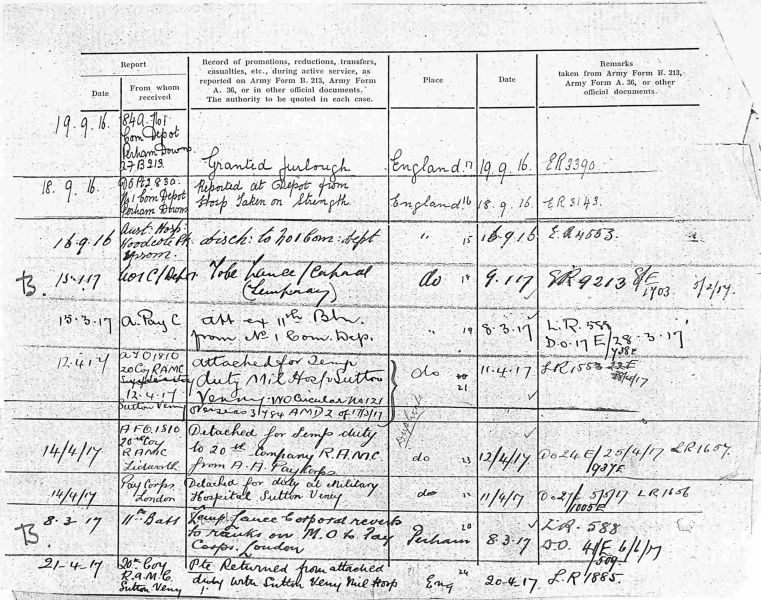 Report
Record of promotions, reductions, transfers,
casualties, etc., during active service, as
reported on Army Form B. 213, Army Form
A. 36, or in other official documents.
The authority to be quoted in each case.
Place
Date
Remarks
taken from Army Form B. 213,
Army Form A. 36, or other
official documents.
Date
From whom
received
19.9.16
Com Depot
Perham Downs
B213.
Granted furlough
England 17
19.9.16
ER3390
18.9.16
No 1 Com Depot
Perham Downs
Reported at Depot from
Hosp Taken on Strength
England 16
18.9.16
ER3143
16.9.16
Aust: Hosp:
Woodcote Pk
Epsom.
disch: to No1 Com: Dept
" 15
16.9.16
E.R4553.
B.
15.1.17
To be Lance/Corporal
(Temporary)
do 18
9.1.17
ER9213
5/2/17.
15.3.17
A. Pay C
att ex 11th Btn.
from No 1 Com. Dep.
" 19
8.3.17
L.R. 588
D.O.17E/28.3.17
12.4.17
20 Coy RAMC
12.4.17
Sutton Veny
attached for Temp
duty Mil Hosp Sutton
Veny. WO Circular No 121
overseas AMD 2 of 17/3/17
do
21
11.4.17
LR1553
duplicate
14/4/17
AFO.1810
20th Coy
RAMC
Detached for temp duty
to 20th Company R.A.M.C
from A.A. Pay Corps
do 23
12/4/17
Do24E/25/4/17 LR1607.
937E
14/4/17
Pay Corps
London
Detached for duty at Military
Hospital Sutton Veny
do
11/4/17
5/5/17 LR1656
1005E
B
8.3.17
11th Batt
Temp Lance Corporal reverts
to ranks on M.O to Pay
Corps. London
Perham 20
8.3.17
L.R. 588
D.O. 41/E 6/6/17
21.4.17
20th Coy
R.A.M.C.
Sutton Veny
Pte Returned from attached
duty with Sutton Veny Mil Hosp
Eng 24
20.4.17
L.R 1885.